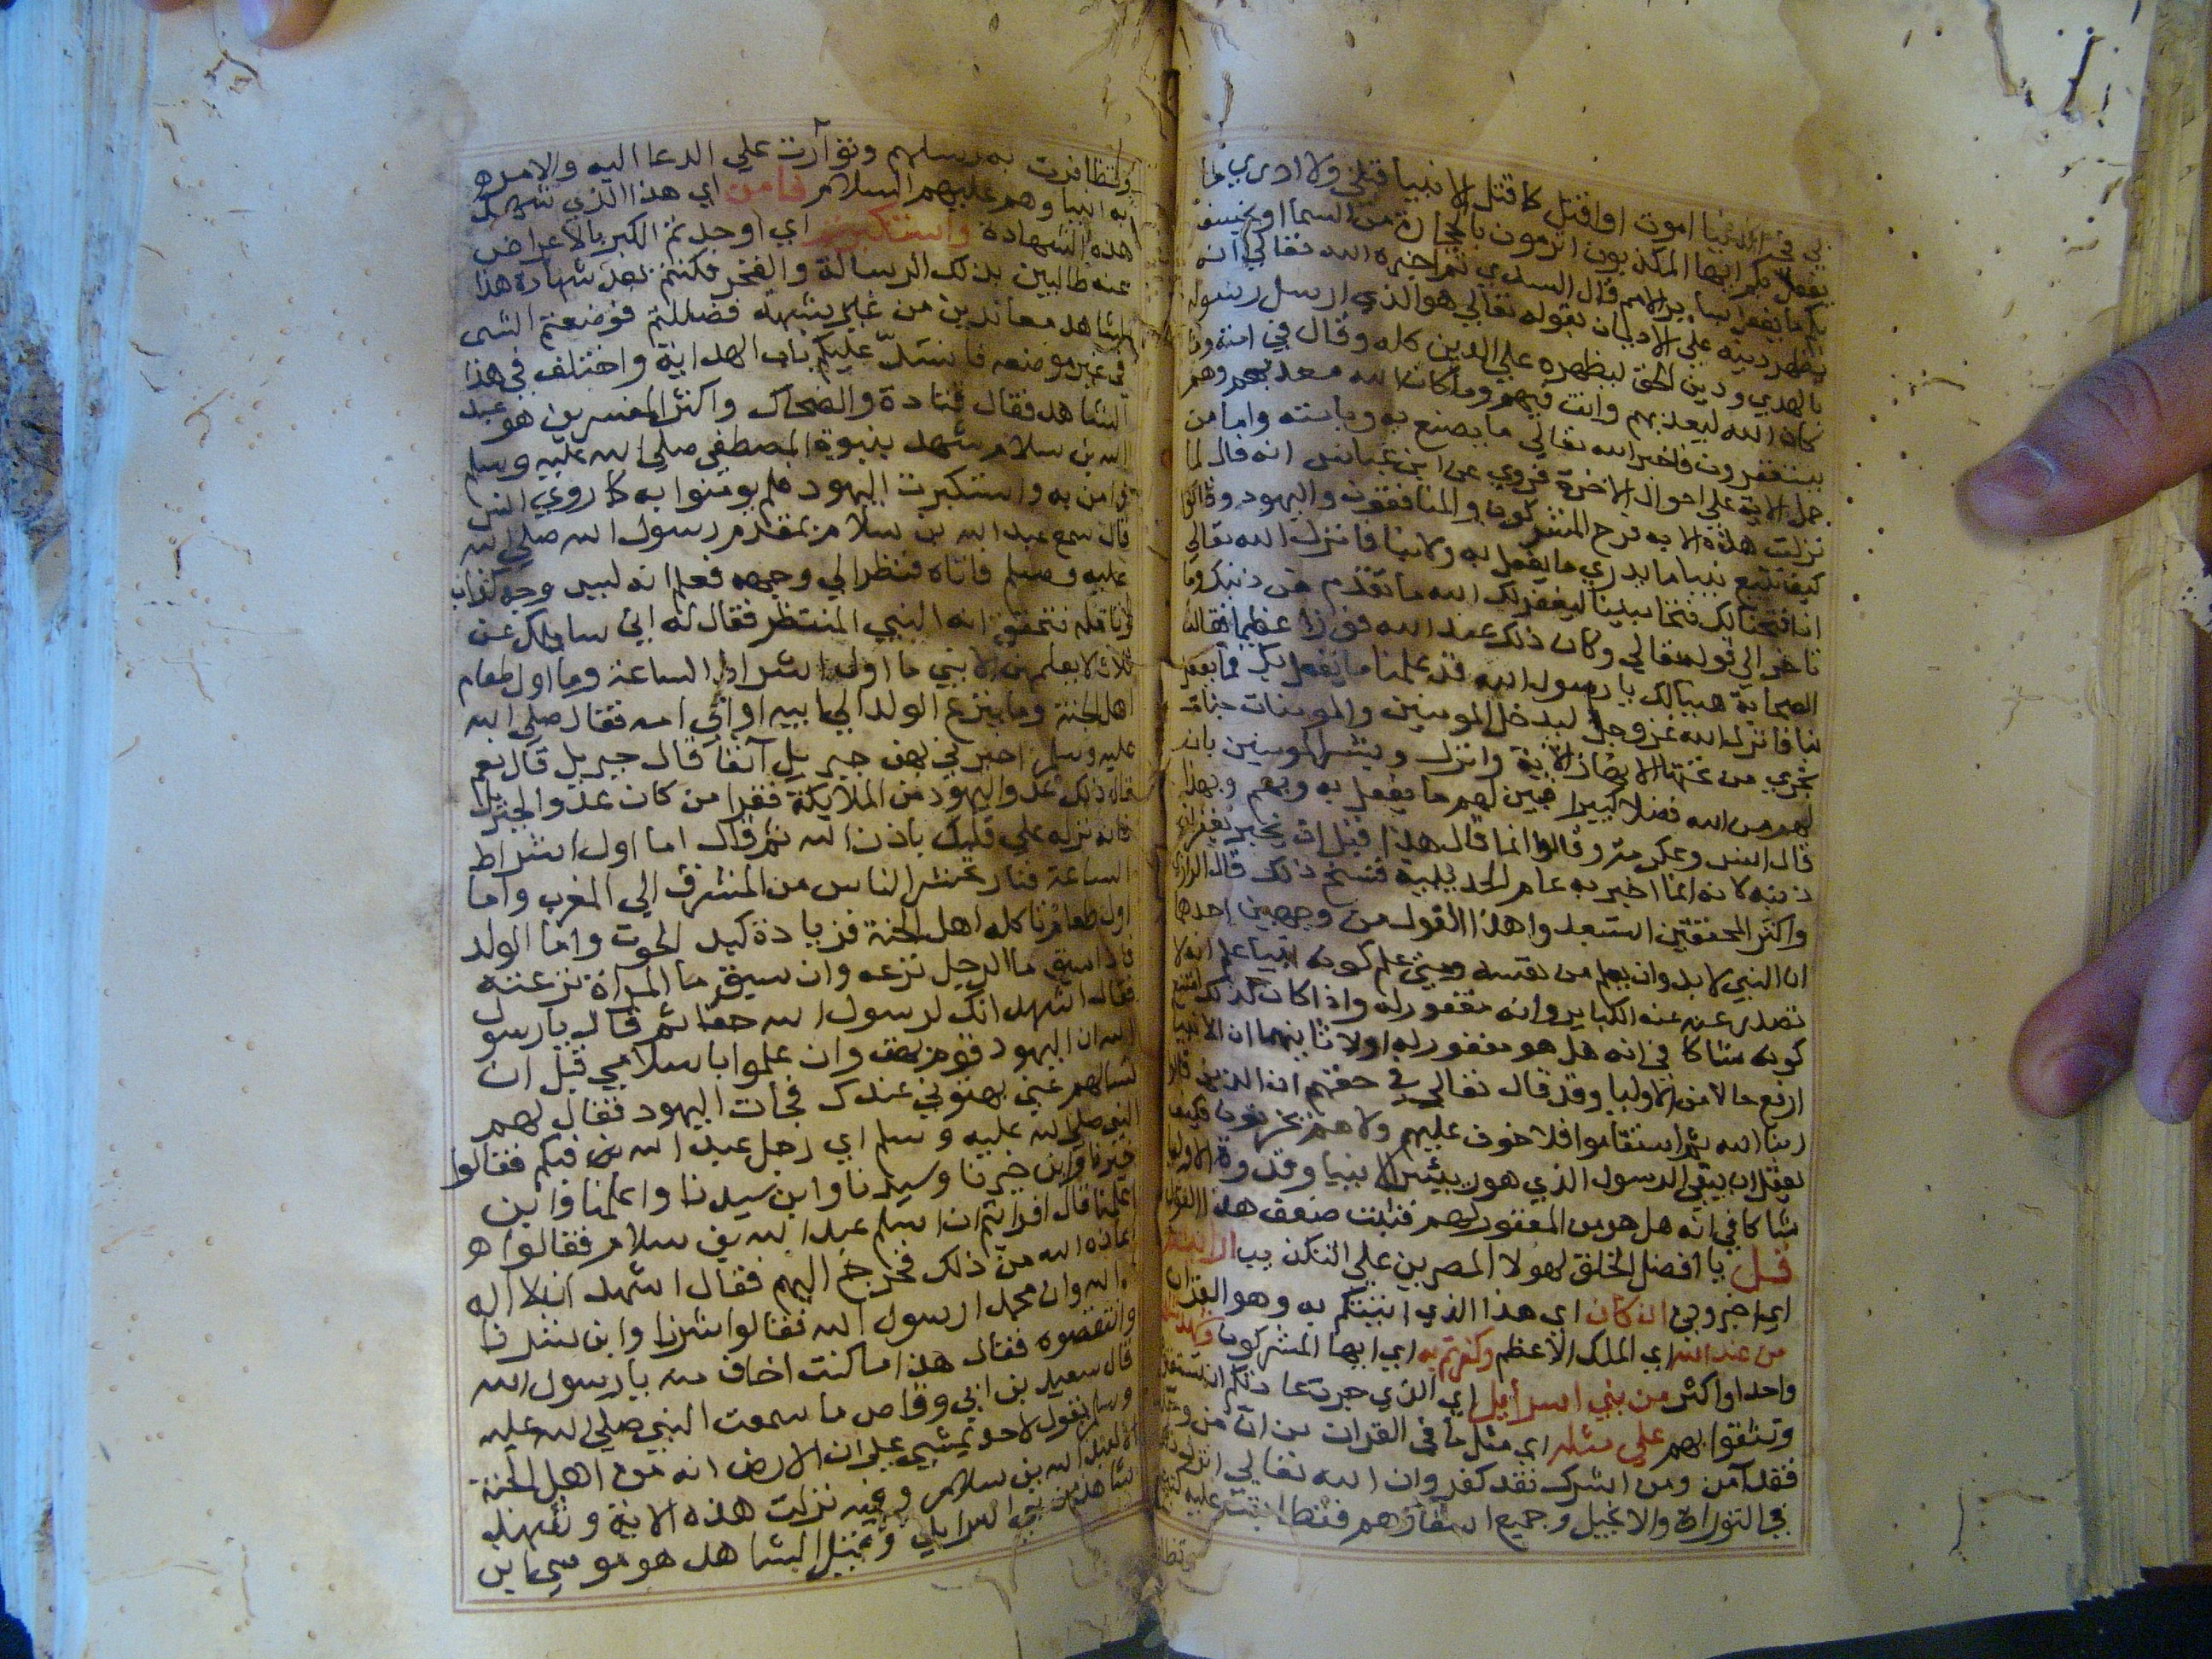 بي في الدنيا اموت او اقتل كما قتل الانبيا قبلي ولا ادري ما
يفعل بكم ايها المكذبون اترمون بالحجارة من السما او يخسف
بكم ام يفعل بساير الامم قال السدي ثم اخبره الله تعالي انه
يظهر دينه علي الاديان بقوله تعالي هو الذي ارسل رسوله
بالهدي ودين الحق ليظهره علي الدين كله وقال في امته وما
كان الله ليعذبهم وانت فيهم وما كان الله معذبهم وهم
يستغفرون فاخبر الله تعالي ما يصنع به وبامته واما من
حمل الاية علي احوال الاخرة فروي عن ابن عباس انه قال لما
نزلت هذه الاية فرح المشركون والمنافقون واليهود وقالوا
كيف نتبع نبيا ما يدري ما يفعل به ولا بنا فانزل الله تعالي
انا فتحنا لك فتحا مبينا ليغفر لك الله ما تقدم من ذنبك وما
تاخر الي قوله تعالي وكان ذلك عند الله فوزا عظيما فقالت
الصحابة هنيا لك يا رسول الله قد علمنا ما يفعل بك فما يفعل
بنا فانزل الله عز وجل ليدخل المومنين والمومنات جنات
تجري من تحتها الانهار الاية وانزل وبشر المومنين بان
لهم من الله فضلا كبيرا فبين لهم ما يفعل به وبهم وبهذا
قال انس وعكرمة وقالوا انما قال هذا قبل ان يخبر بغفران
ذنبه لانه انما اخبر به عام الحديبية فنسخ ذلك قال الرازي
واكثر المحققين استبعدوا هذا القول من وجهين احدها
ان النبي لا بد وان يعلم من نفسه ومتي علم كونه نبيا علم انه لا
تصدر عنه الكباير وانه مغفور له واذا كان كذلك امتنع
كونه شاكا في انه هل هو مغفور له اولا ثانيهما ان الانبيا
ارفع حالا من الاوليا وقد قال تعالي في حقهم ان الذين قالوا
ربنا الله ثم استقاموا فلا خوف عليهم ولا هم يحزنون فكيف
يعقل ان يبقي الرسول الذي هو رييس الانبيا وقدوة الاوليا
شاكا في انه هل هو من المغفور لهم فثبت ضعف هذا القول
قل يا افضل الخلق لهولا المصرين علي التكذيب ارايتم
اي اخبروني ان كان اي هذا الذي انبيتكم به وهو القران
من عند الله اي الملك الاعظم وكفرتم به اي ايها المشركون وشهد شاهد
واحد او اكثر من بني اسرأيل اي الذي جرت عادتكم ان تستفتوهم
وتثقوا بهم علي مثله اي مثل ما في القران من ان من وحد
فقد آمن ومن اشرك فقد كفر وان الله تعالي انزل ذلك
في التوراة والانجيل وجميع اسفارهم فتطابقت عليه كتبهم
وتظافرت به رسلهم وتوآرت علي الدعا اليه والامر
به انبياوهم عليهم السلام فامن اي هذا الذي شهد
هذه الشهادة واستكبرتم اي اوجدتم الكبر بالاعراض
عنه طالبين بذلك الرسالة والفخر فكنتم بعد شهادة هذا
الشاهد معاندين من غير شبهة فضللتم فوضعتم الشي
في غير موضعه فانسد عليكم باب الهداية واختلف في هذا
الشاهد فقال قتادة والضحاك واكثر المفسرين هو عبد
الله بن سلام شهد بنبوة المصطفي صلي الله عليه وسلم
وامن به واستكبرت اليهود فلم يومنوا به كما روي انس
قال سمع عبد الله بن سلام بمقدم رسول الله صلي الله
عليه وسلم فاتاه فنظر الي وجهه فعلم انه ليس وجه كذاب
وتامله فتحقق انه النبي المنتظر فقال له اني سايلك عن
ثلاث لا يعلمهن الا نبي ما اول اشراط الساعة وما اول طعام
اهل الجنة وما ينزع الولد الي ابيه او الي امه فقال صلي الله
عليه وسلم اخبرني بهن جبريل آنفا قال جبريل قال نعم
قال ذلك عدو اليهود من الملايكة فقرا من كان عدوا لجبريل
فانه نزله علي قلبك باذن الله ثم قال اما اول اشراط
الساعة فنار تحشر الناس من المشرق الي المغرب واما
اول طعام تاكله اهل الجنة فزيادة كبد الحوت واما الولد
فاذا سبق ما الرجل نزعه وان سبق ما المراة نزعته
فقال اشهد انك لرسول الله حقا ثم قال يا رسول
الله ان اليهود قوم بهت وان علموا باسلامي قبل ان
تسالهم عني بهتوني عندك فجات اليهود فقال لهم
النبي صلي الله عليه وسلم اي رجل عبد الله بن فيكم فقالوا
خيرنا وابن خيرنا وسيدنا وابن سيدنا واعلمنا وابن
اعلمنا قال افرايتم ان اسلم عبد الله بن سلام فقالوا
اعاذه الله من ذلك فخرج اليهم فقال اشهد ان لا اله
الا الله وان محمدا رسول الله فقالوا شرنا وابن شرنا
وانتقصوه فقال هذا ما كنت اخاف منه يا رسول الله
قال سعيد بن ابي وقاص ما سمعت النبي صلي الله عليه
وسلم يقول لاحد يمشي علي الارض انه من اهل الجنة
الا لعبد الله بن سلام وفيه نزلت هذه الاية وشهد
شاهد من بني اسرايل وقيل الشاهد هو موسي ابن